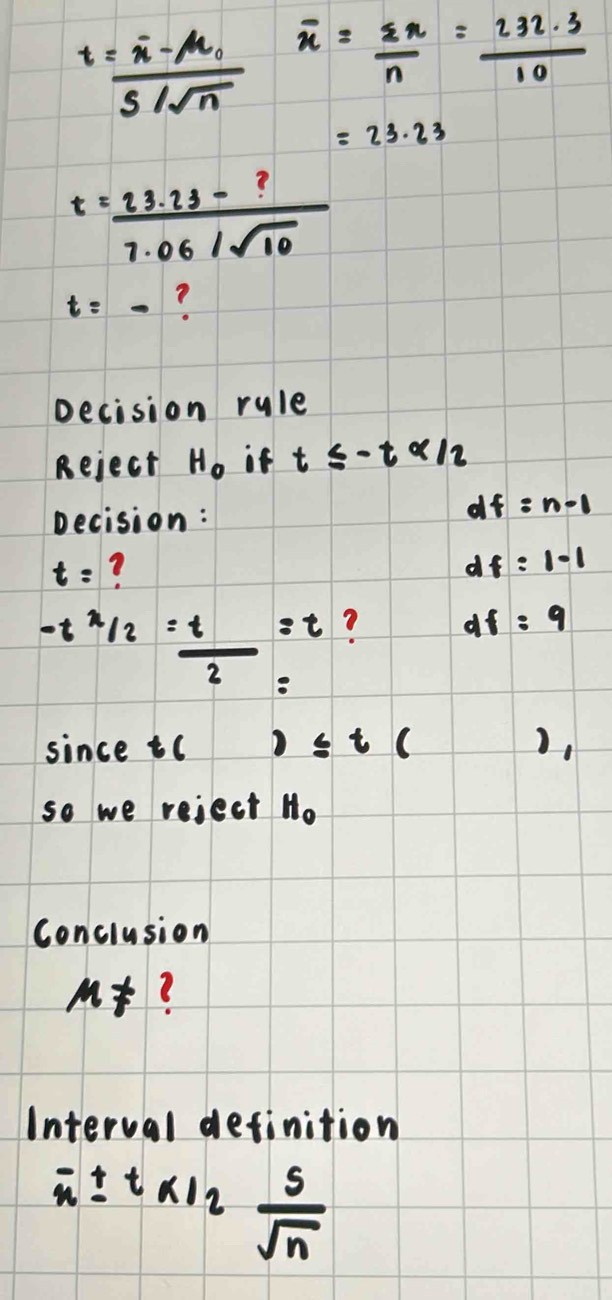 t = x̄ - μ₀ / S/√n    x̄ = Σx / n = 232.3 / 10
= 23.23
t = 23.23 - ? / 7.06/√10
t = - ?
Decision rule
Reject H₀ if t ≤ -t α/2
Decision:    df = n-1
t = ?    df = 1-1
-t α/2 = t / 2 = t ?    df = 9
=
since t(    ) ≤ t (    ),
so we reject H₀
Conclusion
μ ≠ ?
Interval definition
x̄ ± t α/2 S / √n